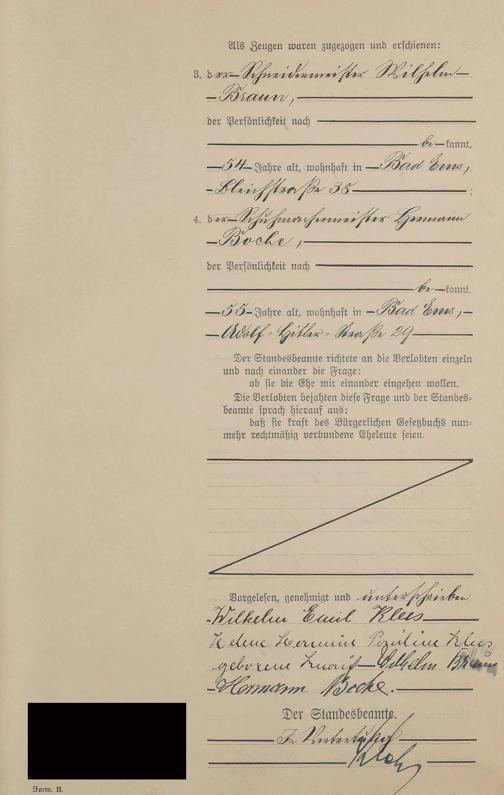 Als Zeugen waren zugezogen und erschienen:
3. der Schneidermeister Wilhelm
Braun,
der Persönlichkeit nach
be kannt,
54 Jahre alt, wohnhaft in Bad Ems,
Bleichstraße 35 ;
4. der Schuhmachermeister Hermann
Bocke,
der Persönlichkeit nach
be kannt.
55 Jahre alt, wohnhaft in Bad Ems,
Adolf-Hitler-Straße 29
Der Standesbeamte richtete an die Verlobten einzeln
und nach einander die Frage:
ob sie die Ehe mit einander eingehen wollen.
Die Verlobten bejahten diese Frage und der Standes-
beamte sprach hierauf aus:
daß sie kraft des Bürgerlichen Gesetzbuchs nun-
mehr rechtmäßig verbundene Eheleute seien.
Vorgelesen, genehmigt und unterschrieben
Wilhelm Emil Klees
Helene Hermine Klees
geborene Wilhelm Braun
Hermann Bocke.
Der Standesbeamte.
In Vertretung
Form. B.